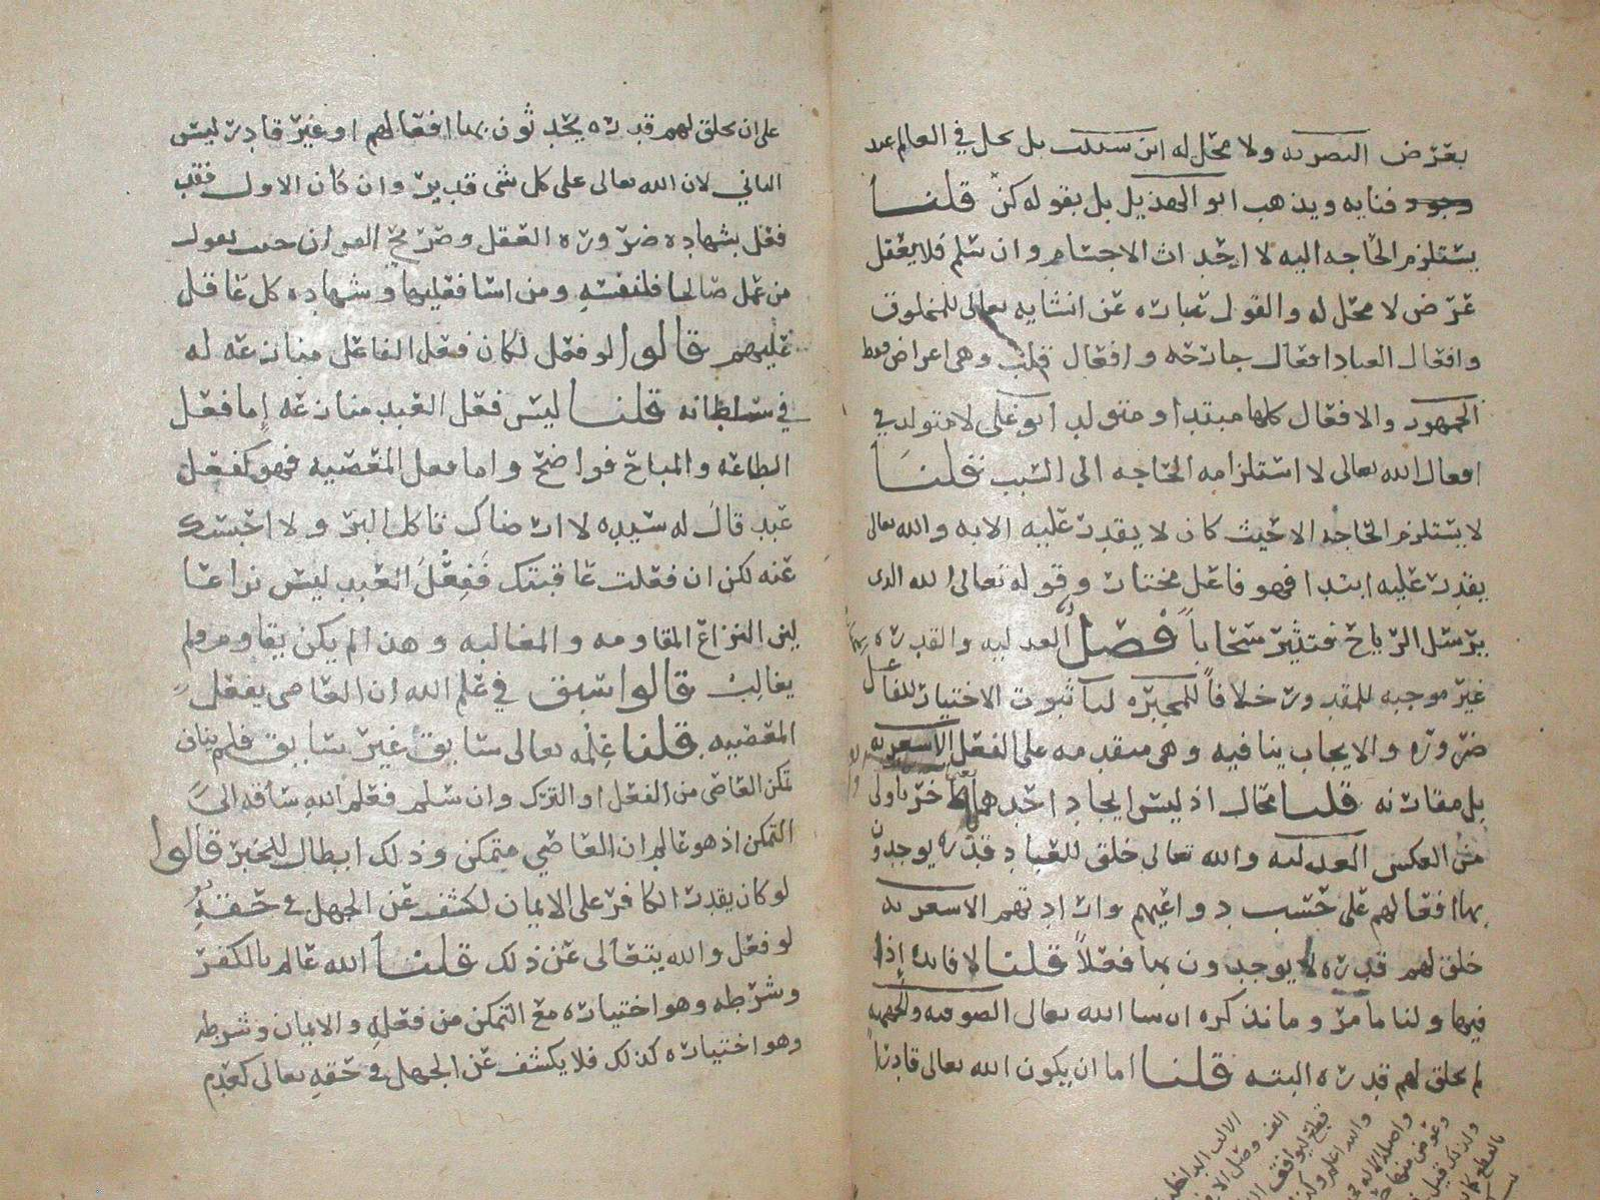 بعرض البصريه ولا محل له ابن بل يحل في العالم عند
فنايه ويذهب ابو الهذيل بل بقوله كن قلنا
يستلزم الحاجه اليه لاحداث الاجسام وان سلم فلا يعقل
عرض لا محل له والقول عباره عن انشايه تعالى للمخلوق
وافعال العباد افعال جارحه وافعال قلب وهي اعراض فقط
الجمهور والافعال كلها مبتدا ومتولد ابو علي لا متولد في
افعال الله تعالى لاستلزامه الحاجه الى السبب قلنا
لا يستلزم الحاجه الا حيث كان لا يقدر عليه الا به والله تعالى
يقدر عليه ابتدا فهو فاعل مختار وقوله تعالى الله الذي
يرسل الرياح فتثير سحاباً فصل العدليه والقدره
غير موجبه للمقدور خلافاً للمجبره لنا ثبوت الاختيار للفاعل
ضروره والايجاب ينافيه وهي متقدمه على الفعل الاشعريه
بل مقارنه قلنا محال اذ ليس ايجاد احدهما الاخر باولى
من العكس العدليه والله تعالى خلق للعباد قدره يوجدون
بها افعالهم على حسب دواعيهم وارادتهم الاشعريه
خلق لهم قدره لا يوجدون بها فعلاً قلنا لا فائده إذاً
فيها ولنا ما مر وما نذكره ان شا الله تعالى الصوفيه والجهميه
لم يخلق لهم قدره البته قلنا اما ان يكون الله تعالى قادراً
على ان يخلق لهم قدره يحدثون بها افعالهم او غير قادر ليس
الثاني لان الله تعالى على كل شي قدير وان كان الاول فقد
فعل بشهاده ضروره العقل وصريح القران حيث يقول
من عمل صالحا فلنفسه ومن اسا فعليها وشهاده كل عاقل
عليهم قالوا لو فعل لكان فعل الفاعل منازعه له
في سلطانه قلنا ليس فعل العبد منازعه إما فعل
الطاعه والمباح فواضح واما فعل المعصيه فهو كفعل
عبد قال له سيده لا ارضاك تاكل البر ولا احبسك
عنه لكن ان فعلت عاقبتك فَفِعْلُ العبد ليس نزاعا
لان النزاع المقاومه والمغالبه وهذا لم يكن يقاوم ولم
يغالب قالوا سبق في علم الله ان العاصي يفعل
المعصيه قلنا عِلْمه تعالى سابق غير سايق فلم يناف
تمكن العاصي من الفعل او الترك وان سلم فعلم الله ساقه الى
التمكن اذ هو عالم ان العاصي متمكن وذلك ابطال للجبر قالوا
لو كان يقدر الكافر على الايمان لكشف عن الجهل في حقه
لو فعل والله يتعالى عن ذلك قلنا الله عالم بالكفر
وشرطه وهو اختياره مع التمكن من فعله والايمان وشرطه
وهو اختياره كذلك فلا يكشف عن الجهل في حقه تعالى كعدم